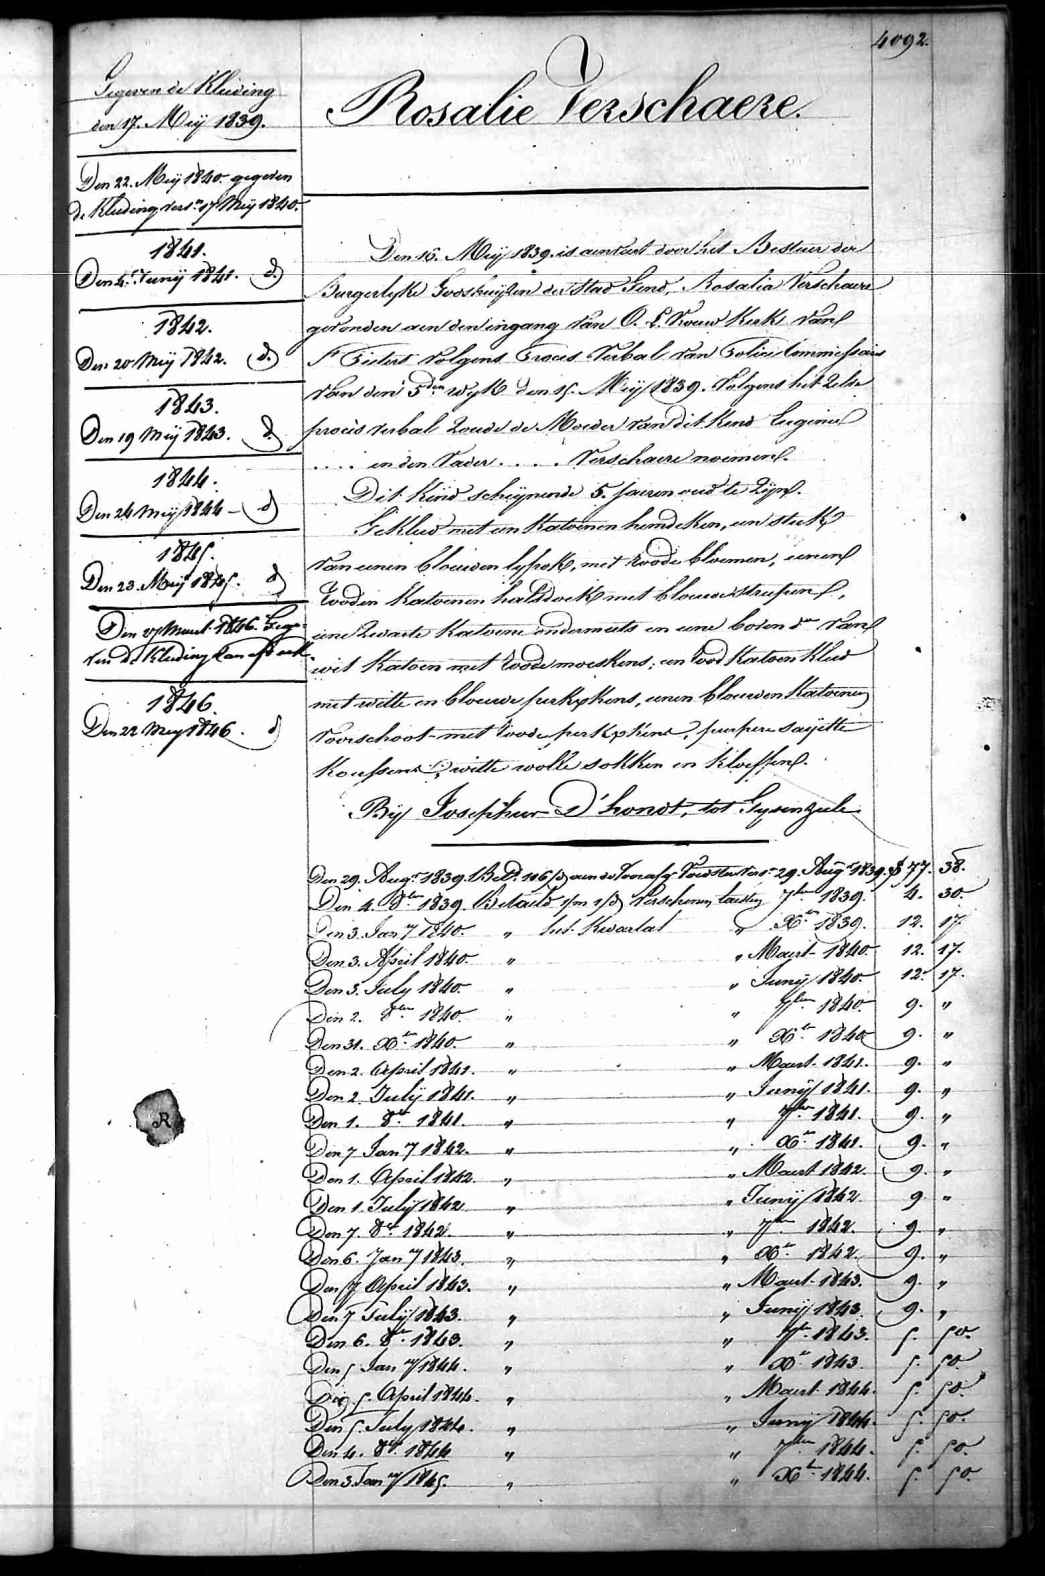 4092.
Rosalie Verschaere.
Gegeven de Kleeding
den 17. Meij 1839.
Den 22. Meij 1840 gegeven
de Kleeding vers.n 17 Meij 1840.
1841.
Den 4. Junij 1841. d.)
1842.
Den 20 Meij 1842. d.)
1843.
Den 19 Meij 1843. d.)
1844.
Den 24 Meij 1844 - d)
1845.
Den 23. Meij 1845. d)
Den 27 Maert 1846. Gege-
ven de Kleeding van
1846.
Den 22 Meij 1846. d)
Den 16. Meij 1839. is aenveert door het Bestuer der
Burgerlyke Godshuijzen der stad Gend, Rosalia Verschaere
gevonden aen den ingang van O. L. Vrouw Kerk van
St Pieters volgens Proces Verbal van Policie Commissaris
van den 5den wyk den 15. Meij 1839. Volgens het zelve
procés verbal zoude de Moeder van dit Kind Eugenie
.... en den Vader .... Verschaere noemen.
Dit Kind scheijnende 5. jaeren oud te zijn.
Gekleed met een Katoenen hemdeken, een stuk
van eenen blauwen lyfrok, met roode bloemen, eenen
rooden Katoenen halsdoek met blauwe streepen,
eene zwarte Katoene ondermuts en eene boven do van
wit Katoen met roode moeskens; een rood Katoen Kleed
met witte en blauwe perkxkens, eenen blauwen Katoenen
Voorschoot met roode perkxkens, purpere sajette
Koussens, witte wolle sokken en kloeffen.
Bij Josephus D'hondt, tot Gysenzeele
Den 29. Augt 1839. Bet.d 106 aen de Voorafg Voedster Vers.n 29. Augt 1839. 77. 38.
Den 4. 8ber 1839. Betaeld Verschenen 7ber 1839. 4. 30.
Den 3. Jan 7 1840. " het Kwartal " Xber 1839. 12. 17.
Den 3. April 1840. " " Maert 1840. 12. 17.
Den 3. July 1840. " " Junij 1840. 12. 17.
Den 2. 8ber 1840. " " 7ber 1840. 9. "
Den 31. Xber 1840. " " Xber 1840 9. "
Den 2. April 1841. " " Maert 1841. 9. "
Den 2. Julij 1841. " " Junij 1841. 9. "
Den 1. 8ber 1841. " " 7ber 1841. 9. "
Den 7 Jan 7 1842. " " Xber 1841. 9. "
Den 1. April 1842. " " Maert 1842. 9. "
Den 1. Julij 1842 " " Junij 1842. 9. "
Den 7. 8ber 1842. " " 7ber 1842. 9. "
Den 6. Jan 7 1843. " " Xber 1842. 9. "
Den 7 April 1843. " " Maert 1843. 9. "
Den 7 Julij 1843. " " Junij 1843. 9. "
Den 6. 8ber 1843. " " 7ber 1843. 5. 50.
Den 5 Jan 7 1844. " " Xber 1843. 5. 50
Den 5. April 1844. " " Maert 1844. 5. 50.
Den 5. July 1844. " " Junij 1844. 5. 50.
Den 4. 8ber 1844 " " 7ber 1844. 5. 50
Den 3. Jan 7 1845. " " Xber 1844. 5. 50.
R